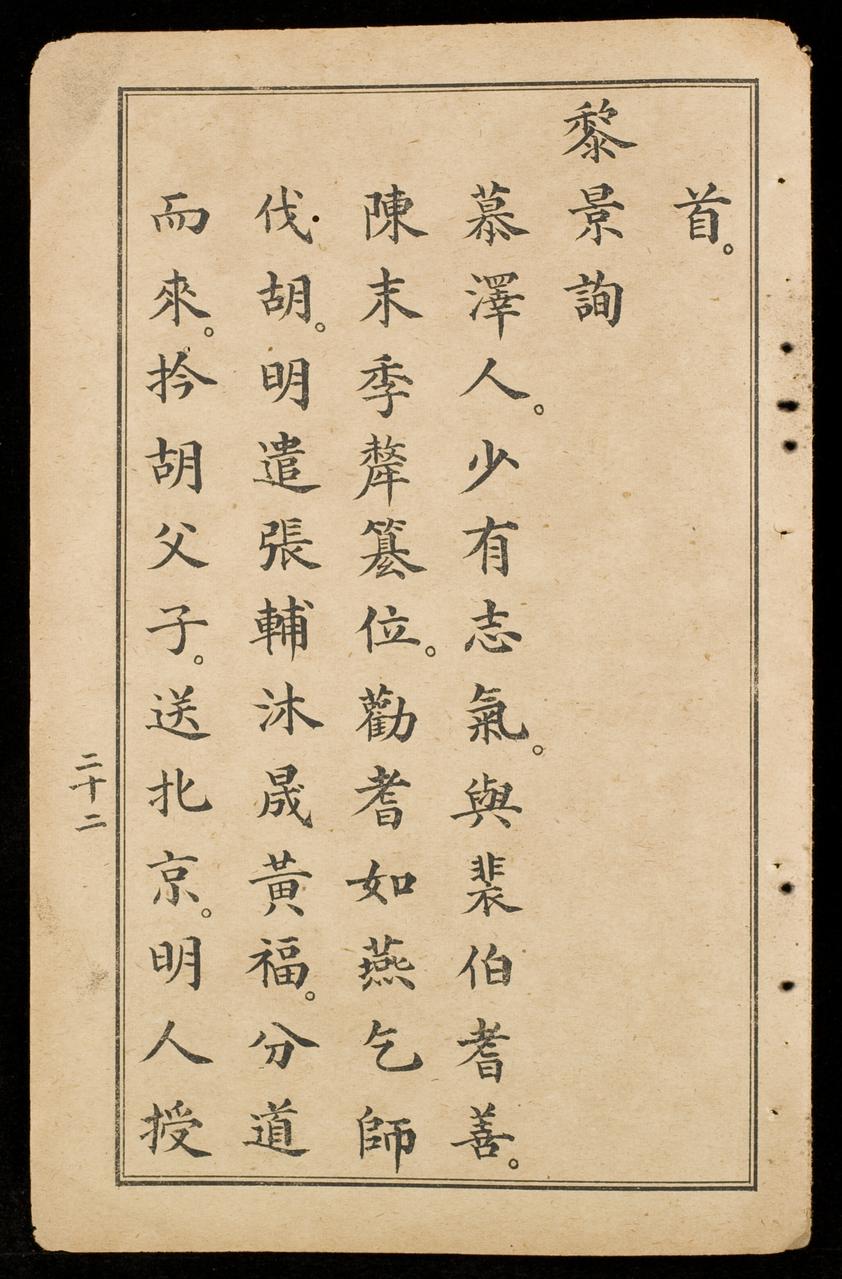 首。
黎景詢
慕澤人。少有志氣。與裴伯耆善。
陳末季犛篡位。勸耆如燕乞師
伐胡。明遣張輔沐晟黃福。分道
而來。擒胡父子。送北京。明人授
二十二